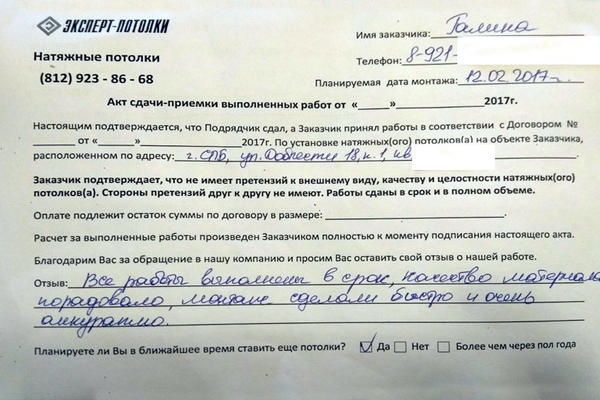 ЭКСПЕРТ-ПОТОЛКИ
Имя заказчика: Галина
Натяжные потолки
Телефон: 8-921-
(812) 923 - 86 - 68
Планируемая дата монтажа: 12.02.2017г.
Акт сдачи-приемки выполненных работ от «_____»______________2017г.
Настоящим подтверждается, что Подрядчик сдал, а Заказчик принял работы в соответствии с Договором №
______ от «_____»______________2017г. По установке натяжных(ого) потолков(а) на объекте Заказчика,
расположенном по адресу: г. СПб, ул. Доблести 18, к. 1, кв.
Заказчик подтверждает, что не имеет претензий к внешнему виду, качеству и целостности натяжных(ого)
потолков(а). Стороны претензий друг к другу не имеют. Работы сданы в срок и в полном объеме.
Оплате подлежит остаток суммы по договору в размере: ______________________________
Расчет за выполненные работы произведен Заказчиком полностью к моменту подписания настоящего акта.
Благодарим Вас за обращение в нашу компанию и просим Вас оставить свой отзыв о нашей работе.
Отзыв: Все работы выполнены в срок, качество материала
порадовало, монтаж сделали быстро и очень
аккуратно.
Планируете ли Вы в ближайшее время ставить еще потолки? ☑ Да ☐ Нет ☐ Более чем через пол года